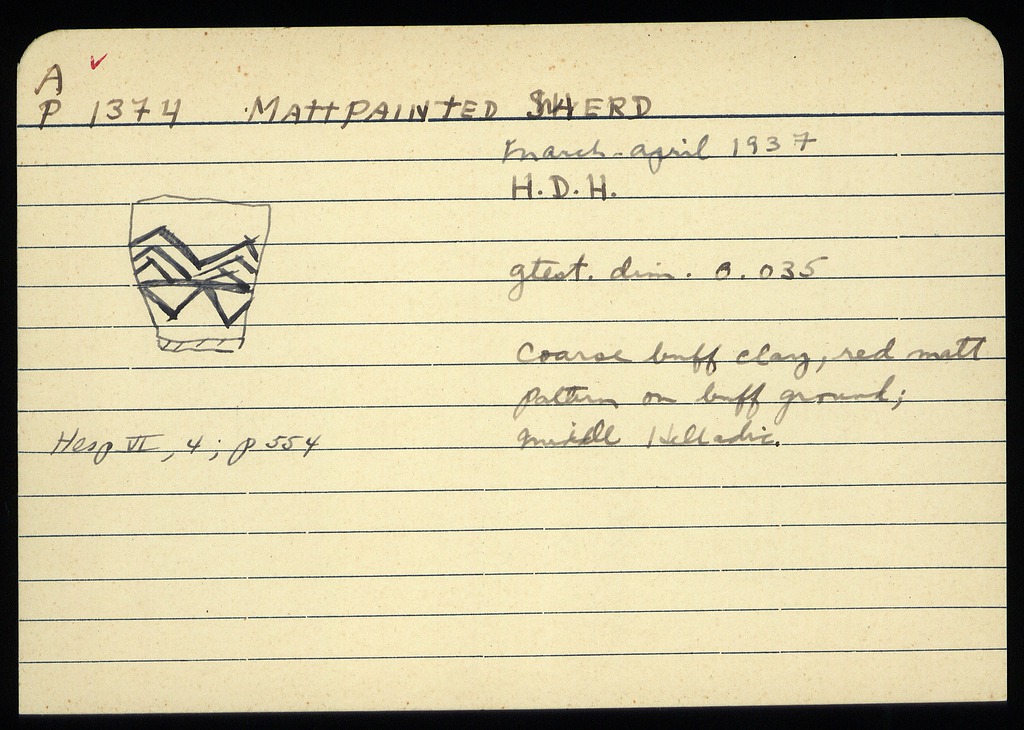 A
P 1374 MATTPAINTED SHERD
March-april 1937
H.D.H.
gtest. dim. 0.035
Coarse buff clay, red matt
pattern on buff ground;
Middle Helladic.
Hesp VI, 4; p 554